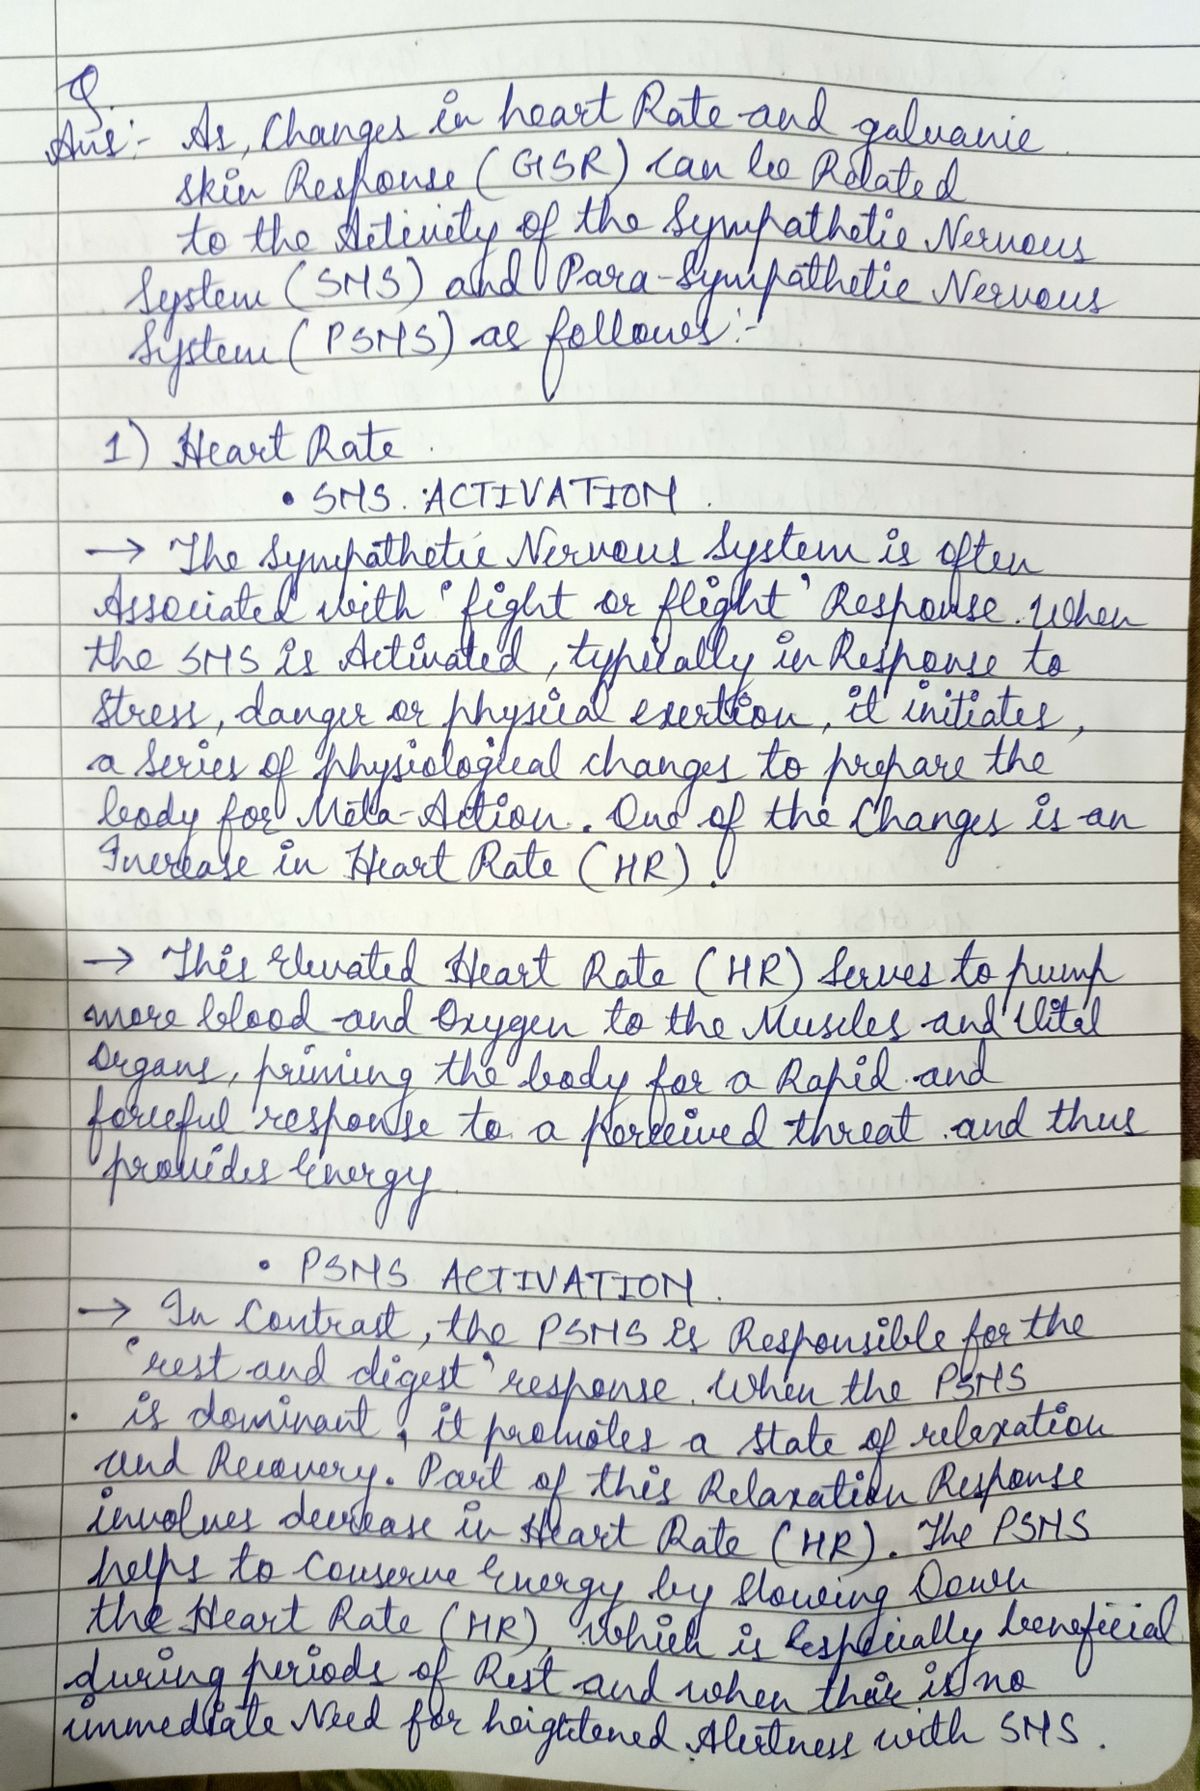 Q.
Ans:- As, Changes in heart Rate and galvanic
skin Response (GSR) can be Related
to the Activity of the Sympathetic Nervous
System (SNS) and Para-Sympathetic Nervous
System (PSNS) as follows:-
1) Heart Rate.
• SNS. ACTIVATION.
→ The Sympathetic Nervous System is often
Associated with 'fight or flight' Response. When
the SNS is Activated, typically in Response to
Stress, danger or physical exertion, it initiates,
a Series of physiological changes to prepare the
body for Meta-Action. One of the Changes is an
Increase in Heart Rate (HR).
→ This Elevated Heart Rate (HR) Serves to pump
more blood and Oxygen to the Muscles and Vital
Organs, priming the body for a Rapid and
forceful response to a perceived threat and thus
provides Energy.
• PSNS ACTIVATION.
→ In Contrast, the PSNS is Responsible for the
'rest and digest' response. When the PSNS
is dominant, it promotes a State of relaxation
and Recovery. Part of this Relaxation Response
involves decrease in Heart Rate (HR). The PSNS
helps to Conserve Energy by Slowing Down
the Heart Rate (HR), which is Especially beneficial
during periods of Rest and when their is no
immediate Need for heightened Alertness with SNS.